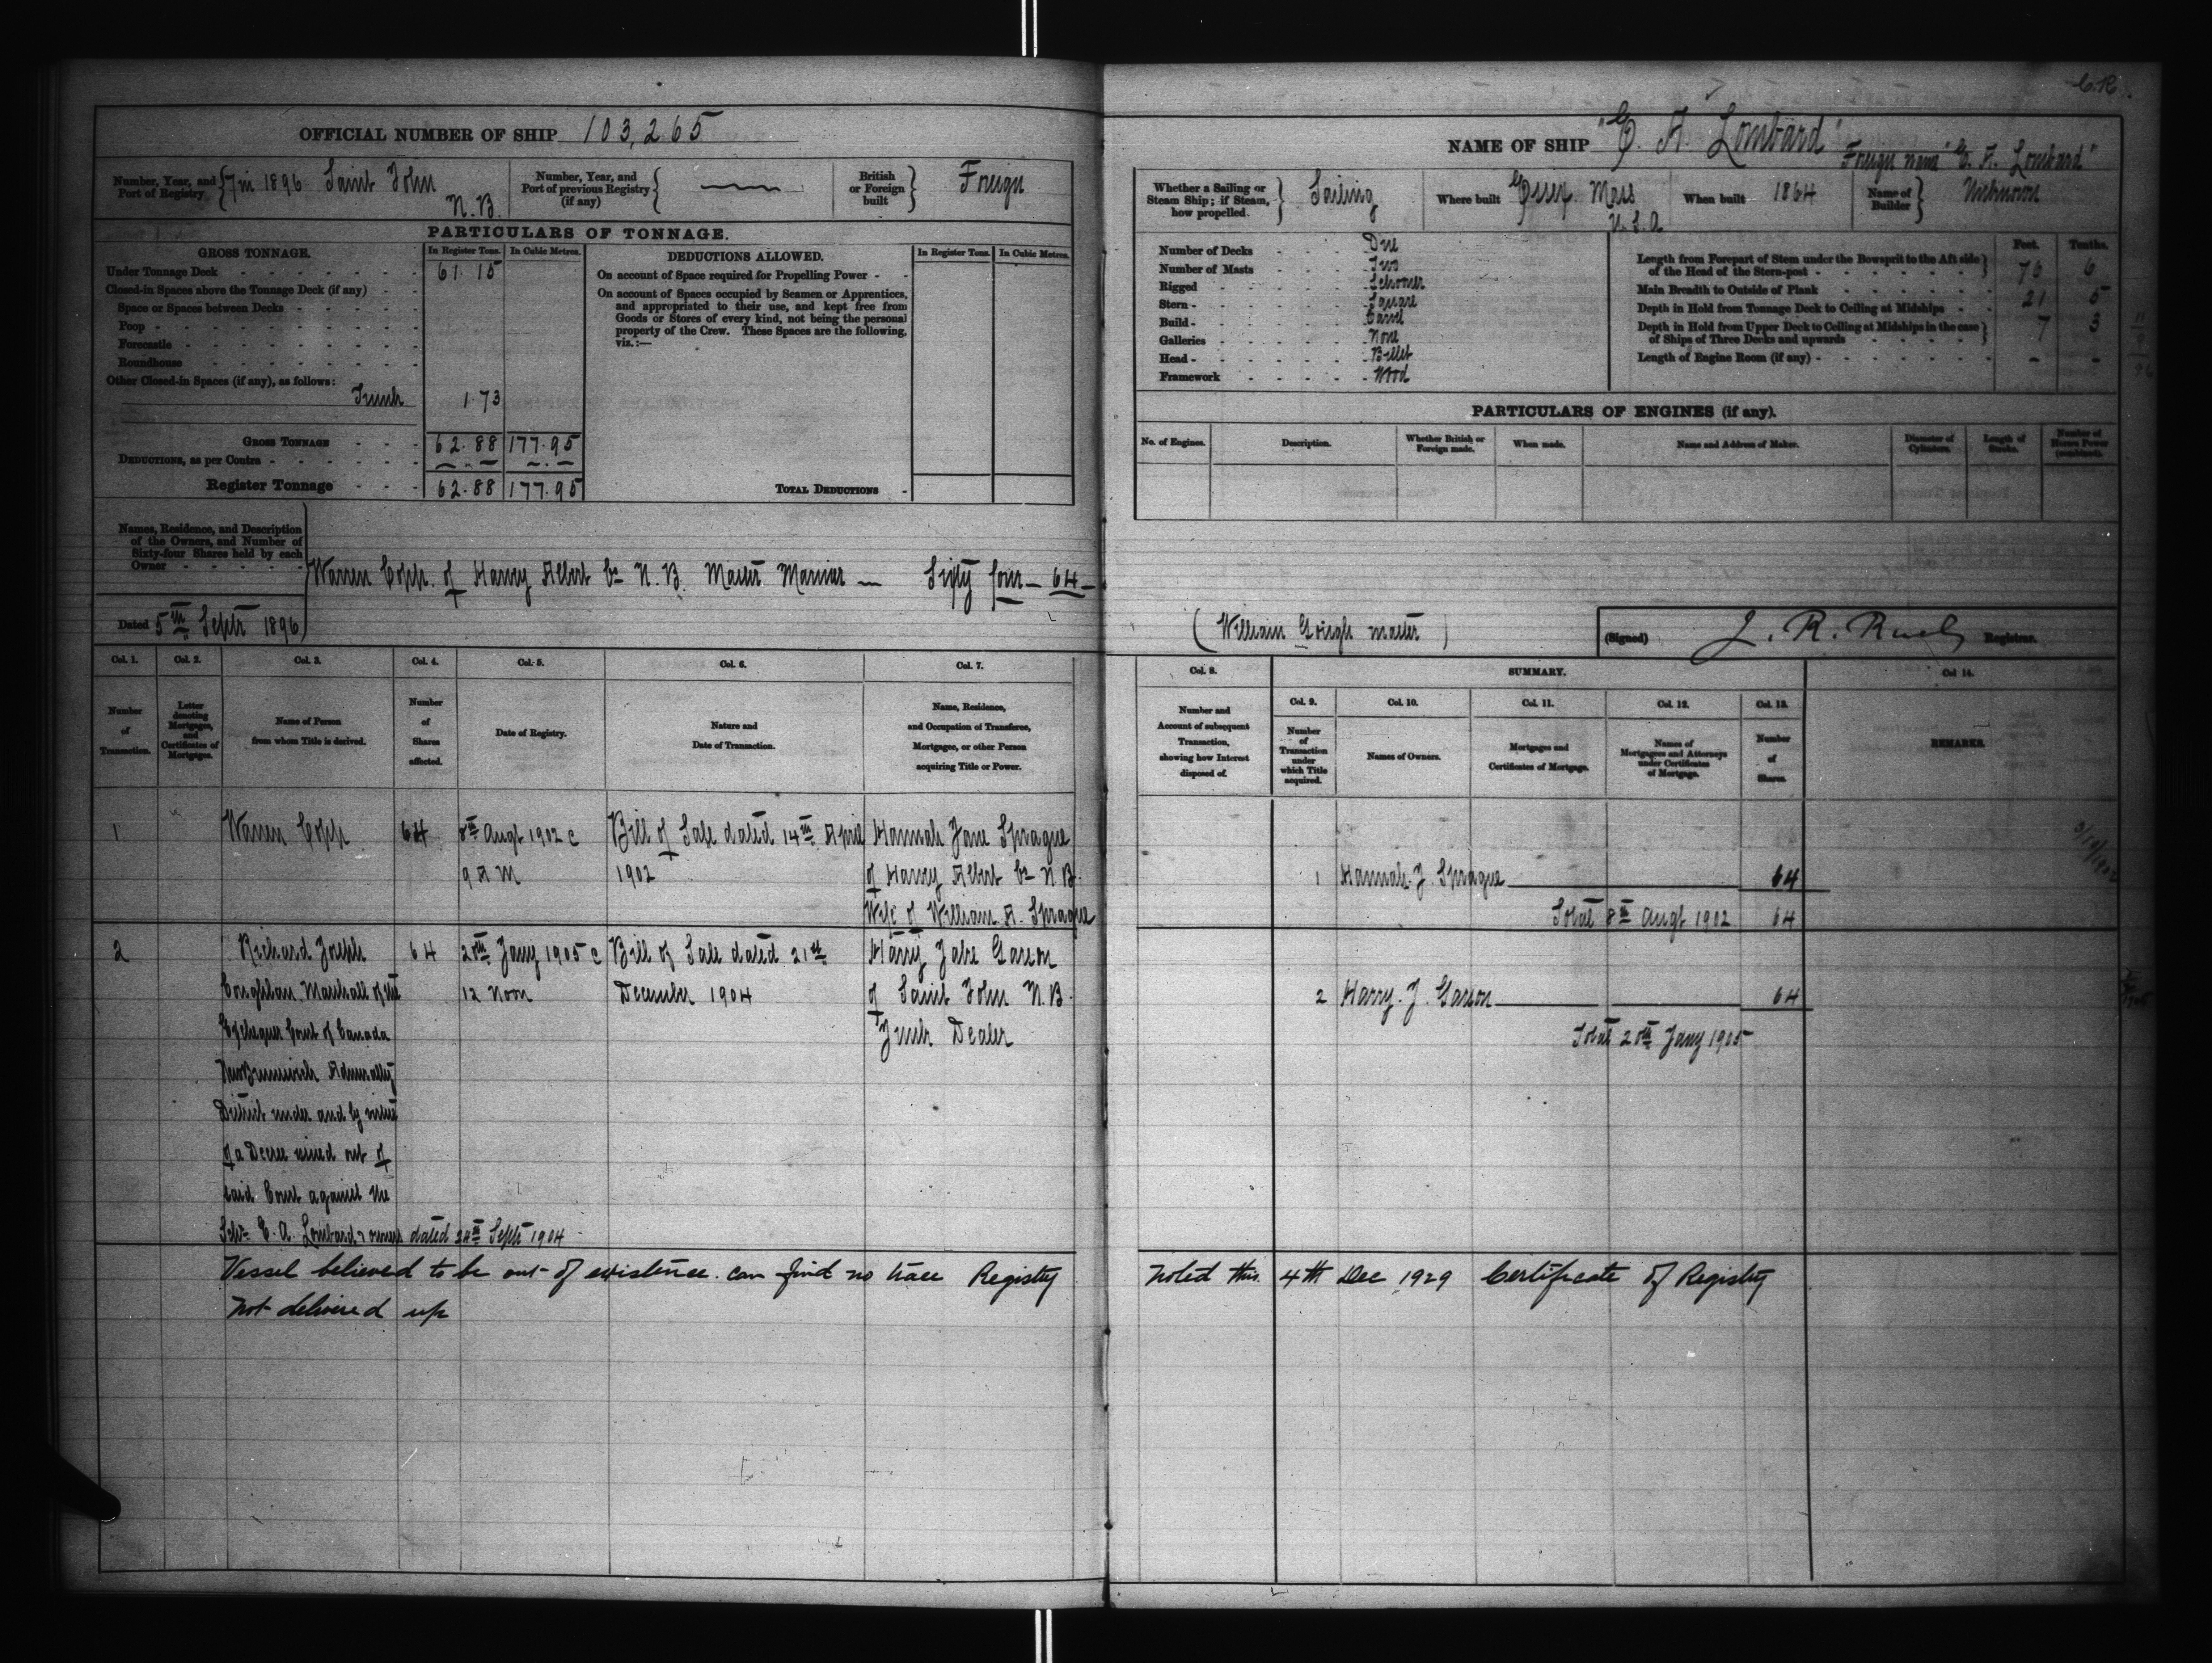 C.R.
OFFICIAL NUMBER OF SHIP 103,265
Number, Year, and Port of Registry 7 in 1896 Saint John N.B.
Number, Year, and Port of previous Registry (if any)
British or Foreign built Foreign
PARTICULARS OF TONNAGE.
GROSS TONNAGE. In Register Tons. In Cubic Metres.
Under Tonnage Deck 61.15
Closed-in Spaces above the Tonnage Deck (if any)
Space or Spaces between Decks
Poop
Forecastle
Roundhouse
Other Closed-in Spaces (if any), as follows:
Trunk 1.73
GROSS TONNAGE 62.88 177.95
DEDUCTIONS, as per Contra
Register Tonnage 62.88 177.95
DEDUCTIONS ALLOWED. In Register Tons. In Cubic Metres.
On account of Space required for Propelling Power
On account of Spaces occupied by Seamen or Apprentices,
and appropriated to their use, and kept free from
Goods or Stores of every kind, not being the personal
property of the Crew. These Spaces are the following,
viz.:—
TOTAL DEDUCTIONS
Names, Residence, and Description
of the Owners, and Number of
Sixty-four Shares held by each
Owner
Warren Copp of Harvey Albert Co N.B. Master Mariner — Sixty four — 64 —
Dated 5th Septr 1896
NAME OF SHIP "E. A. Lombard"
Foreign name "E. A. Lombard"
Whether a Sailing or Steam Ship; if Steam, how propelled Sailing
Where built Essex Mass U.S.A
When built 1864
Name of Builder Unknown
Number of Decks One
Number of Masts Two
Rigged Schooner
Stern Square
Build Carvel
Galleries None
Head Billet
Framework Wood
Feet. Tenths.
Length from Forepart of Stem under the Bowsprit to the Aft side
of the Head of the Stern-post 76 6
Main Breadth to Outside of Plank 21 5
Depth in Hold from Tonnage Deck to Ceiling at Midships 7 3
Depth in Hold from Upper Deck to Ceiling at Midships in the case
of Ships of Three Decks and upwards
Length of Engine Room (if any) - -
PARTICULARS OF ENGINES (if any).
No. of Engines. Description. Whether British or Foreign made. When made. Name and Address of Maker. Diameter of Cylinders. Length of Stroke. Number of Horses Power (combined).
(William Gough master)
(Signed) J. R. Ruel Registrar.
Col. 1. Col. 2. Col. 3. Col. 4. Col. 5. Col. 6. Col. 7.
Number of Transaction.
Letter denoting Mortgages, and Certificates of Mortgages.
Name of Person from whom Title is derived.
Number of Shares affected.
Date of Registry.
Nature and Date of Transaction.
Name, Residence, and Occupation of Transferee, Mortgagee, or other Person acquiring Title or Power.
Col. 8. SUMMARY. Col 14.
Col. 9. Col. 10. Col. 11. Col. 12. Col. 13.
Number and Account of subsequent Transaction, showing how Interest disposed of.
Number of Transaction under which Title acquired.
Names of Owners.
Mortgages and Certificates of Mortgage.
Names of Mortgagees and Attorneys under Certificates of Mortgage.
Number of Shares.
REMARKS.
1 Warren Copp 64 8th Augt 1902 @ Bill of Sale dated 14th April Hannah Jane Sprague
9 A M 1902 of Harvey Albert Co N.B.
Wife of William A. Sprague
1 Hannah J. Sprague 64
Total 8th Augt 1902 64
2 Richard Joseph 64 20th Jany 1905 @ Bill of Sale dated 21st Harry Jabe Garson
Coughlan Marshall of the 12 Noon December 1904 of Saint John N.B.
Exchequer Court of Canada Junk Dealer
New Brunswick Admiralty
District under and by virtue
of a Decree issued out of
said Court against the
Schr E. A. Lombard & owners dated 24th Sept 1904
2 Harry J. Garson 64
Total 20th Jany 1905
Vessel believed to be out of existence. can find no trace Registry noted this 4th Dec 1929 Certificate of Registry
not delivered up